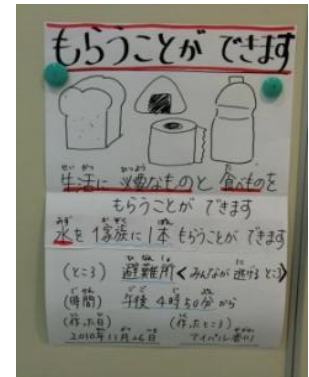 もらうことが できます
生活に 必要なものと 食べものを
もらうことが できます
水を 1家族に 1本 もらうことが できます
(ところ) 避難所<みんなが 逃げる ところ>
(時間) 午後 4時50分から
(作った日) (作ったところ)
2010年11月26日 アイパル香川